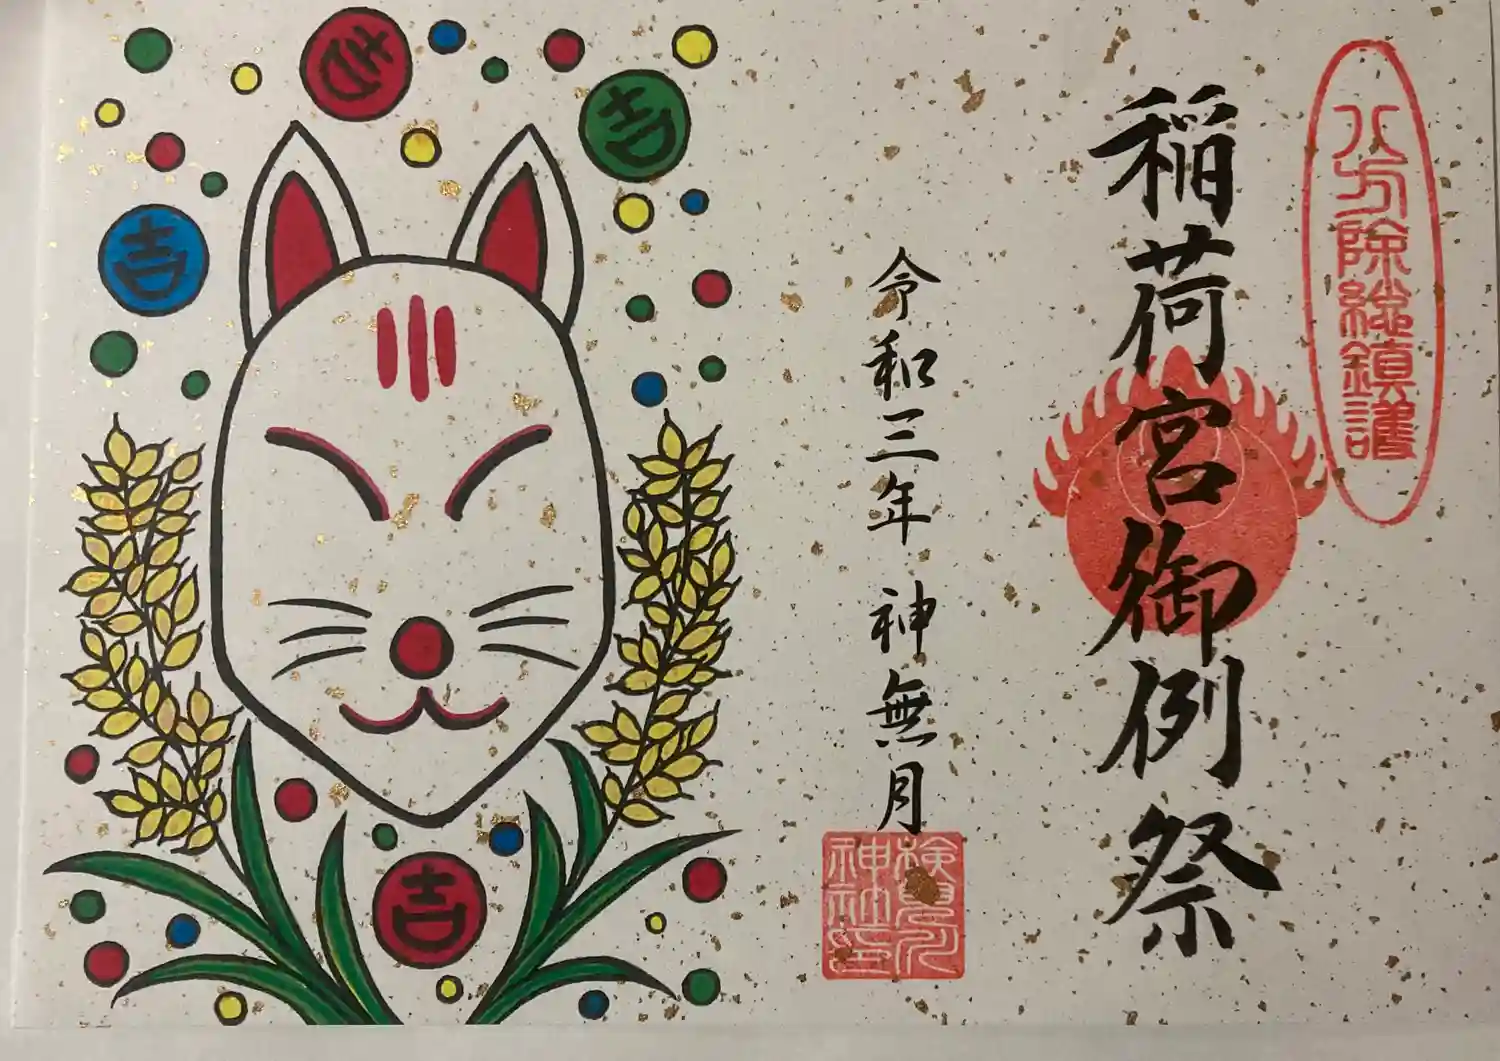 八方除総鎮護
稲荷宮御例祭
令和三年 神無月
検見川
神社印
吉
吉
吉
吉